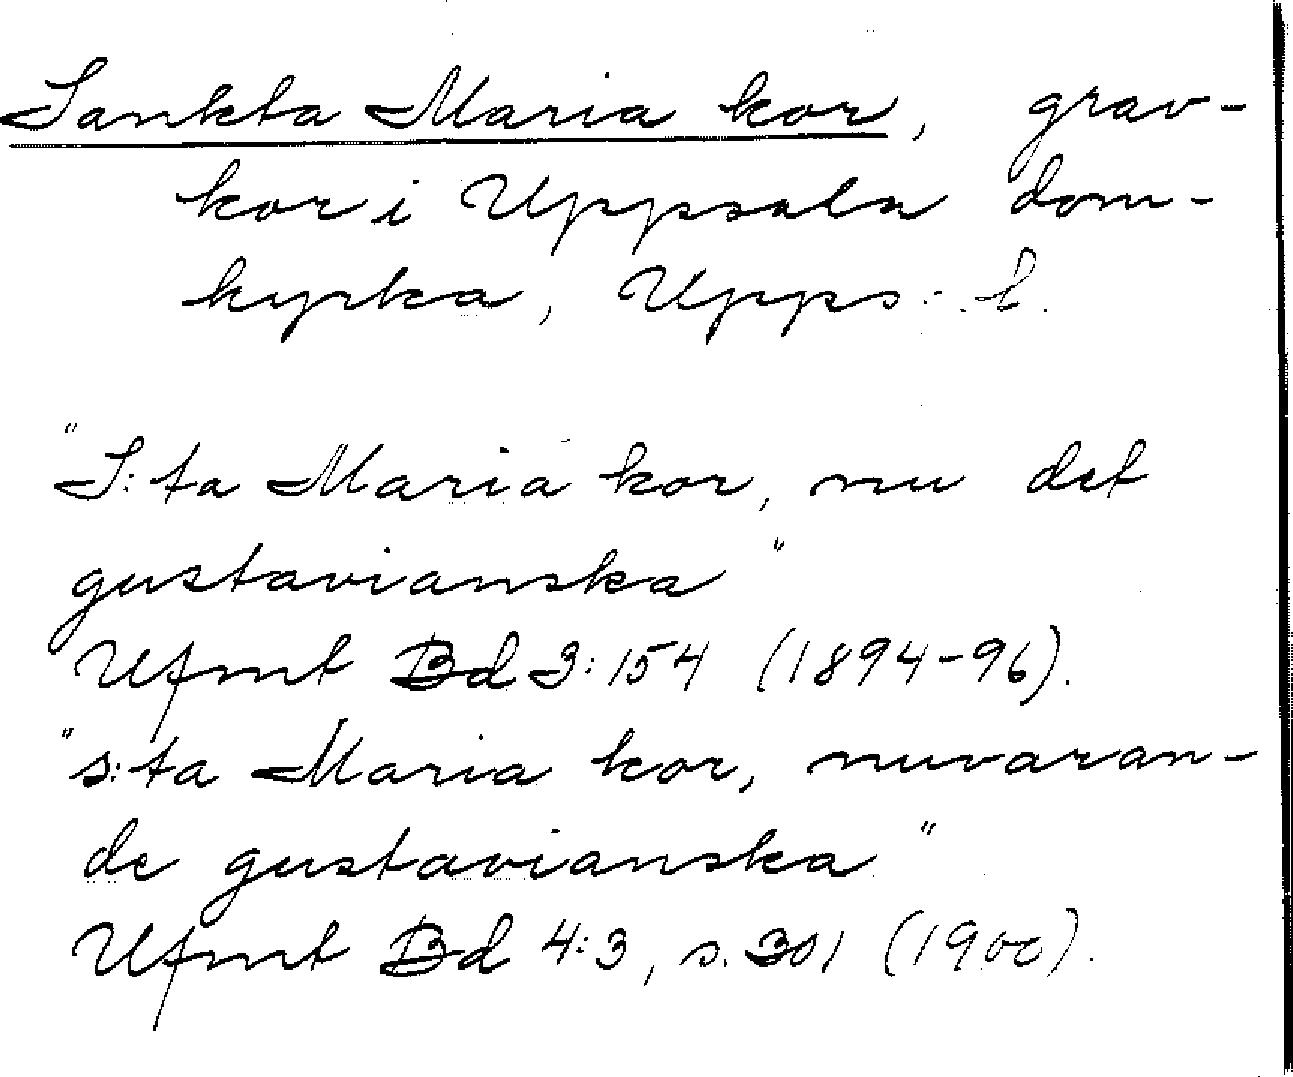 Sankta Maria kor, grav-
kor i Uppsala dom-
kyrka, Upps.
"S:ta Maria kor, nu det
gustavianska"
Ufmt Bd 3:154 (1894-96).
"s:ta Maria kor, nuvaran-
de gustavianska"
Ufmt Bd 4:3, s. 301 (1900).